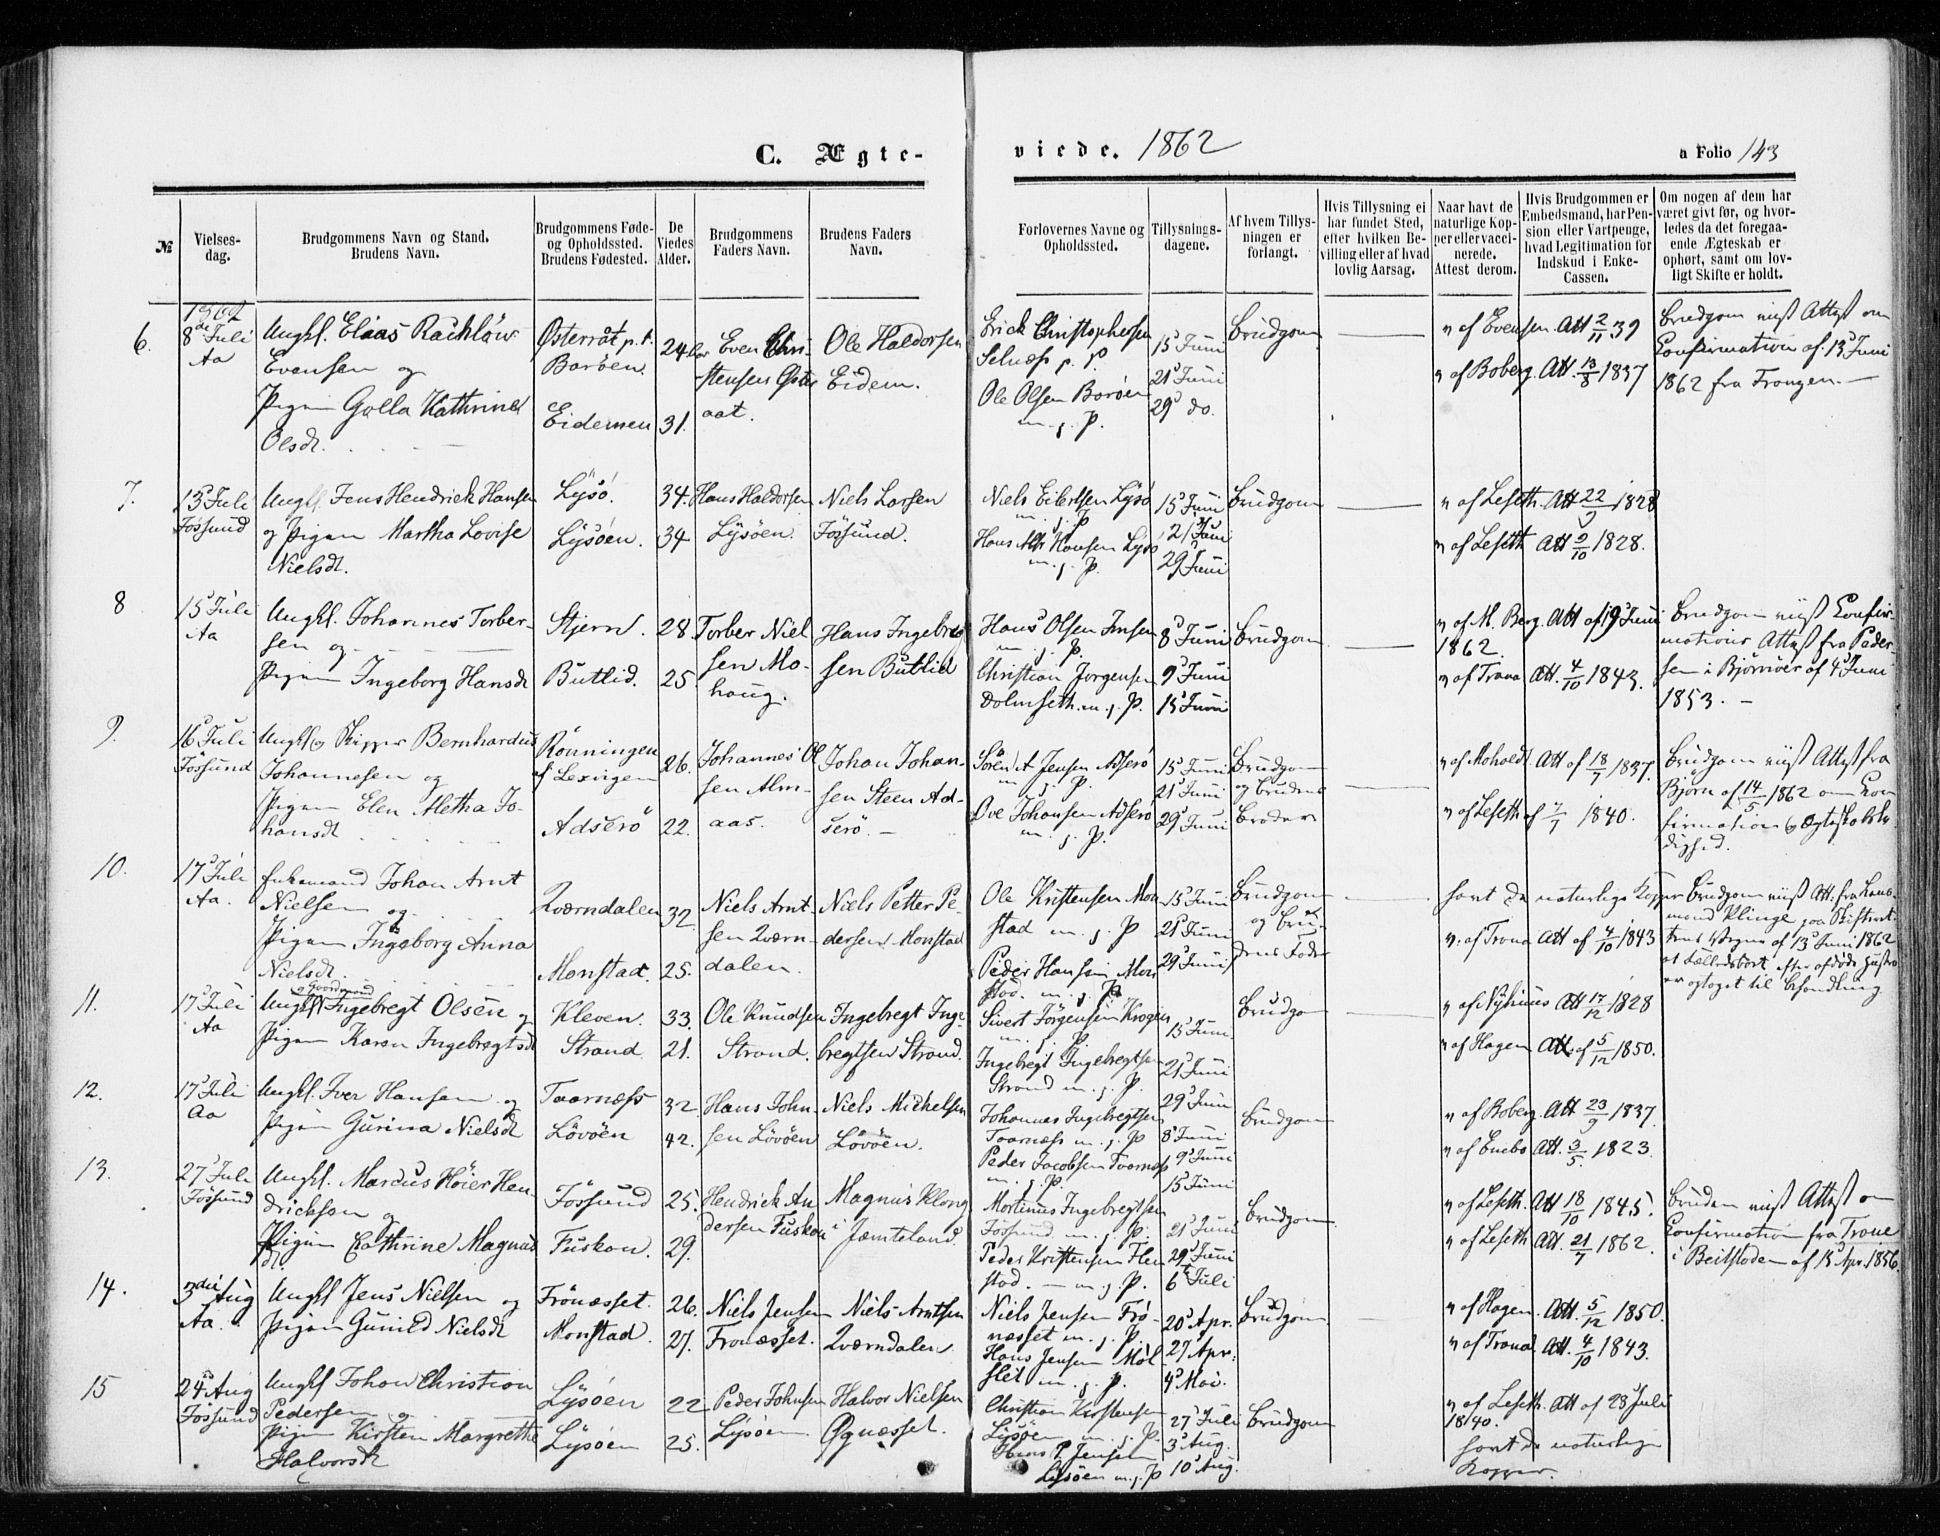 C. Ægte-
viede. 1862
a Folio 143
№
Vielses-
dag.
Brudgommens Navn og Stand.
Brudens Navn.
Brudgommens Føde-
og Opholdssted.
Brudens Fødested.
De
Viedes
Alder.
Brudgommens
Faders Navn.
Brudens Faders
Navn.
Forlovernes Navne og
Opholdssted.
Tillysnings-
dagene.
Af hvem Tillys-
ningen er
forlangt.
Hvis Tillysning ei
har fundet Sted,
efter hvilken Be-
villing eller af hvad
lovlig Aarsag.
Naar havt de
naturlige Kop-
per eller vacci-
nerede.
Attest derom.
Hvis Brudgommen er
Embedsmand, har Pen-
sion eller Vartpenge,
hvad Legitimation for
Indskud i Enke-
Cassen.
Om nogen af dem har
været givt før, og hvor-
ledes da det foregaa-
ende Ægteskab er
ophørt, samt om lov-
ligt Skifte er holdt.
1862
6.
8de Juli
Aa
Ungk. Elias Rachløw
Evensen og
Pigen Golla Kathrine
Olsdt.
Østerråt p.t.
Borøen
Eidemen
24
31.
Even Chri-
stensen Øster
aat.
Ole Haldorsen
Eidem.
Erick Christophersen
Selnæss p. P.
Ole Olsen Borøen
m. j. P.
15d Juni
21d Juni
29d do.
Brudgom
v af Evensen Att 2/11 39
v af Boberg. Att. 13/8 1837
Brudgom viist Attest om
Confirmation af 13d Juni
1862 fra Frongen.
7.
13d Juli
Fössund
Ungk. Jens Hendrick Hansen
og Pigen Martha Lovise
Nielsdt.
Lysö
Lysöen.
34.
34
Hans Haldorsen
Lysöen.
Niels Larsen
Fössund.
Niels Eilertsen Lysö
m. j. P
Hans Hansen Lysö
m. j. P.
15d Juni
21d Juni
29d Juni
Brudgom
v af Leseth. Att 22/9 1828
v af Leseth Att 9/10 1828.
8
15d Juli
Aa
Ungk. Johannes Torber-
sen og
Pigen Ingeborg Hansdt
Stjern.
Butlid.
28
25
Torber Niel
sen Mo-
haug.
Hans Ingebregt
sen Butlid
Hans Olsen Imsen
m. j. P.
Christian Jørgensen
Dolmseth. m. j. P.
8d Juni
9d Juni
15d Juni
Brudgom
v af M. Berg. Att af 19d Juni
1862.
v af Trana Att. 4/10 1843.
Brudgom viist Confir-
mations Attest fra Peder-
sen i Bjørnøer af 4d Juni
1853.
9.
16d Juli
Fössund
Ungk. og Skipper Bernhardus
Johannesen og
Pigen Elen Aletha Jo-
hansdt
Rönningen
af Lexvigen
Adserö
26.
22.
Johannes Ol
sen Alm-
aas.
Johan Johan-
sen Steen Ad-
serö.
Sören A Jensen Adserö
m. j. P.
Ove Johansen Adserö
m. j. P.
15d Juni
21d Juni
29d Juni
Brudgom
og Brudens
Broder
v af Moholdt Att af 18/7 1837.
v af Leseth af 7/7 1840.
Brudgom viist Attest fra
Björn af 14/5 1862 om Con
firmation og Ægteskabsly
dighed.
10.
17d Juli
Aa.
Enkemand Johan Arnt
Nielsen og
Pigen Ingeborg Anna
Nielsdt.
Qværndalen
Monstad.
32
25.
Niels Arnt
sen Qværn-
dalen.
Niels Petter Pe-
dersen Monstad
Ole Kristensen Mon
stad m. j. P
Peder Hansen Mon
stad. m. j. P
15d Juni
21d Juni
29d Juni
Brudgom
og Bru-
dens Fader
havt de naturlige Kopper
v. af Trana Att af 4/10 1843
Brudgom viist Att. fra Lens-
mand Klinge paa Skifteret
tens Vegne af 13d Juni 1862
at Fællesboet efter afdøde Hustru
er optaget til Behandling
11.
17d Juli
Aa
og Gaardmand
Ungk. Ingebregt Olsen og
Pigen Karen Ingebregtsdt
Kleven.
Strand.
33.
21.
Ole Knudsen
Strand.
Ingebregt Inge-
bregtsen Strand.
Sivert Jörgensen Krogen
m. j. P.
Ingebregt Ingebregtsen
Strand m. j. P.
15d Juni
21d Juni
29d Juni
Brudgom
v af Nyhuus Att 17/12 1828
v af Hagen Att. af 5/12 1850.
12.
17d Juli
Aa
Ungk. Iver Hansen og
Pigen Gurina Nielsdt
Taarnæss
Lövöen
32
42.
Hans John-
sen Lövöen
Niels Michelsen
Lövöen.
Johannes Ingebregtsen
Taarnæss m. j. P
Peder Jacobsen Taarnæss
m. j. P.
8d Juni
9d Juni
15d Juni
Brudgom
v af Boberg Att 23/9 1837.
v af Enebo Att. 3/5 1823.
13.
27d Juli
Fössund
Ungk. Marcus Höier Hen-
drickson og
Pigen Cathrine Magnus
dt.
Fössund
Fuskan.
25.
29.
Hendrick An
dersen Fuskan
Magnus Klong
i Jæmteland.
Mortinus Ingebregtsen
Fössund m. j. P.
Peder Kristensen Hen
stad. m. j. P.
21d Juni
29d Juni
6t Juli
Brudgom
v af Leseth. Att 18/10 1845.
v af Leseth Att. 21/7 1862.
Bruden viist Attest om
Confirmation fra Trane
i Beitstaden af 15d Apr. 1856.
14.
3die Aug
Aa.
Ungk Jens Nielsen og
Pigen Gunild Nielsdt
Frönæsset.
Monstad.
26.
27.
Niels Jensen
Fronæsset.
Niels Arntsen
Qværndalen.
Niels Jensen Frö-
næsset m. j. P.
Hans Jensen Möl
slet m. j. P.
20d Apr.
27 Apr.
4d Mai.
Brudgom
v af Hagen. Att. 5/12 1850.
v af Trana Att. 4/10 1843.
15
24d Aug
Fössund
Ungk Johan Christian
Pedersen og
Pigen Kirsten Margrethe
Halvorsdt
Lysöen
Lysöen
22
25.
Peder Johnsen
Lysöen
Halvor Nielsen
Øgnæsset.
Christian Kristensen
Lysöen m. j. P.
Hans P Jensen
Lysöen m. j. P
27d Juli
3d Aug.
10d Aug.
Brudgom
v af Leseth. Att af 28d Juli
1840.
havt de naturlige
Kopper.